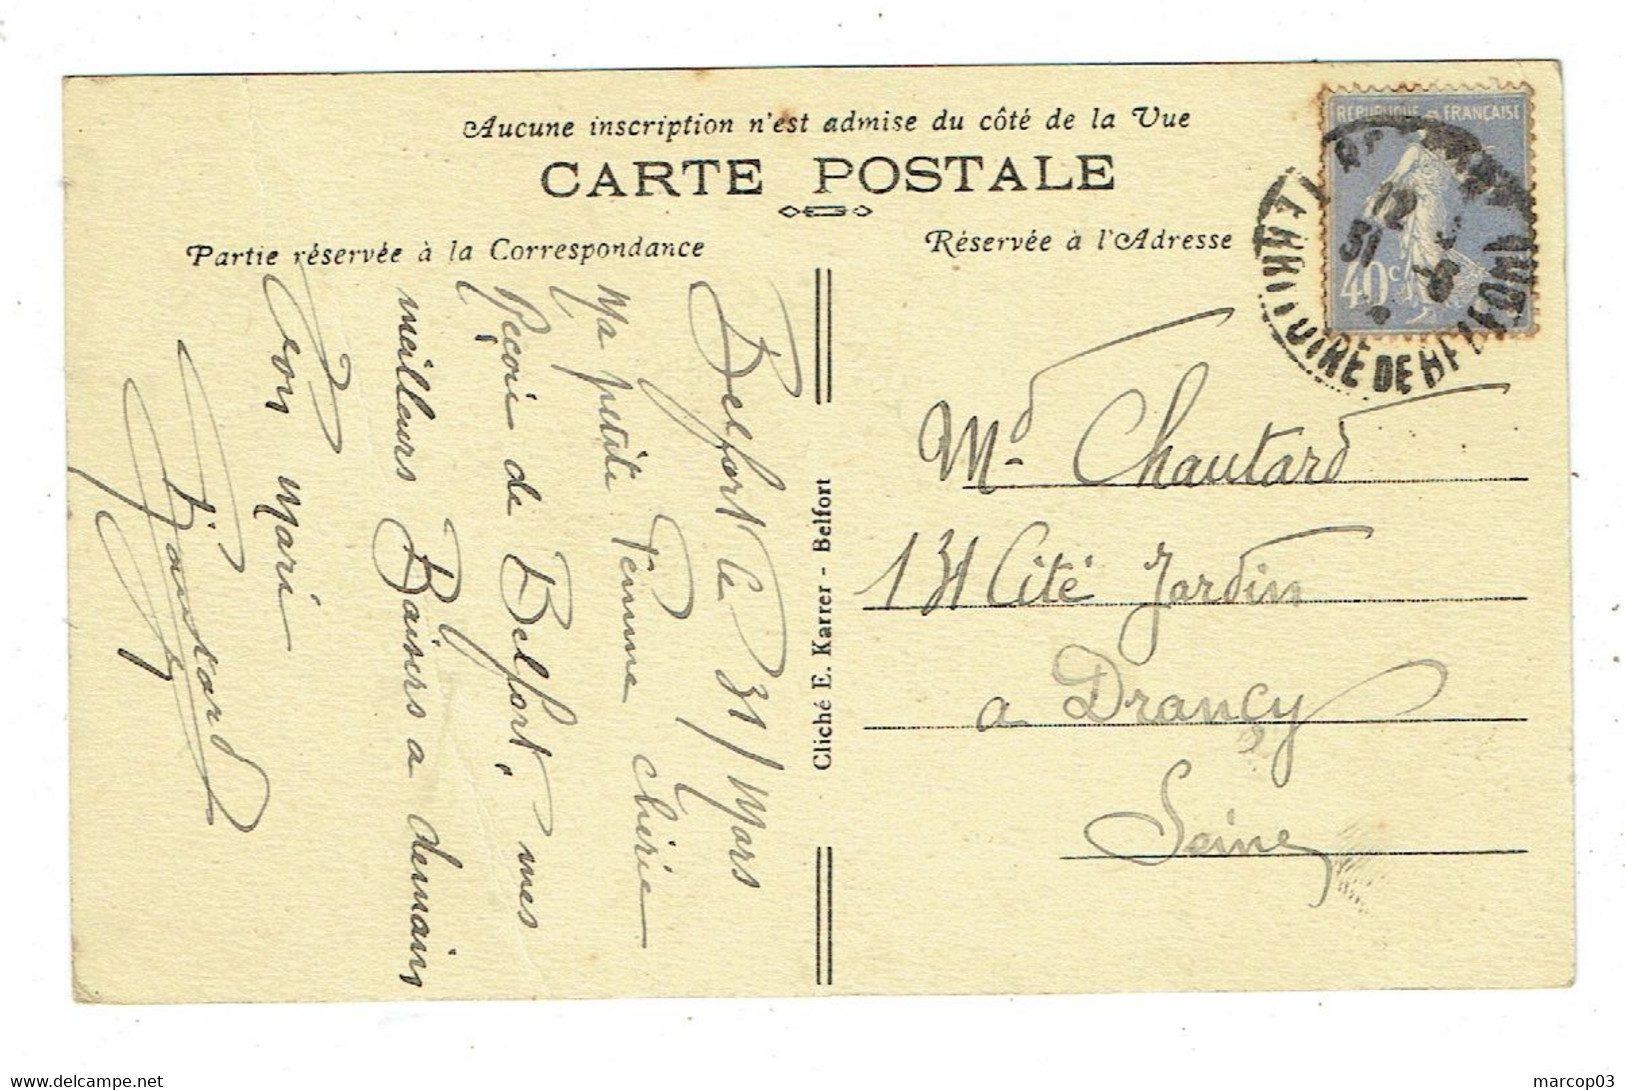 Aucune inscription n'est admise du côté de la Vue
CARTE POSTALE
Partie réservée à la Correspondance
Réservée à l'Adresse
Belfort le 31/Mars
Ma petite Femme chérie
Reçoi de Belfort, mes
meilleurs Baisers a demain
Ton Mari
Chautard
Cliché E. Karrer - Belfort
REPUBLIQUE FRANÇAISE
40c
12
31
TERRITOIRE DE BELFORT
Md Chautard
131 Cité Jardin
a Drancy
Seine
marcop03